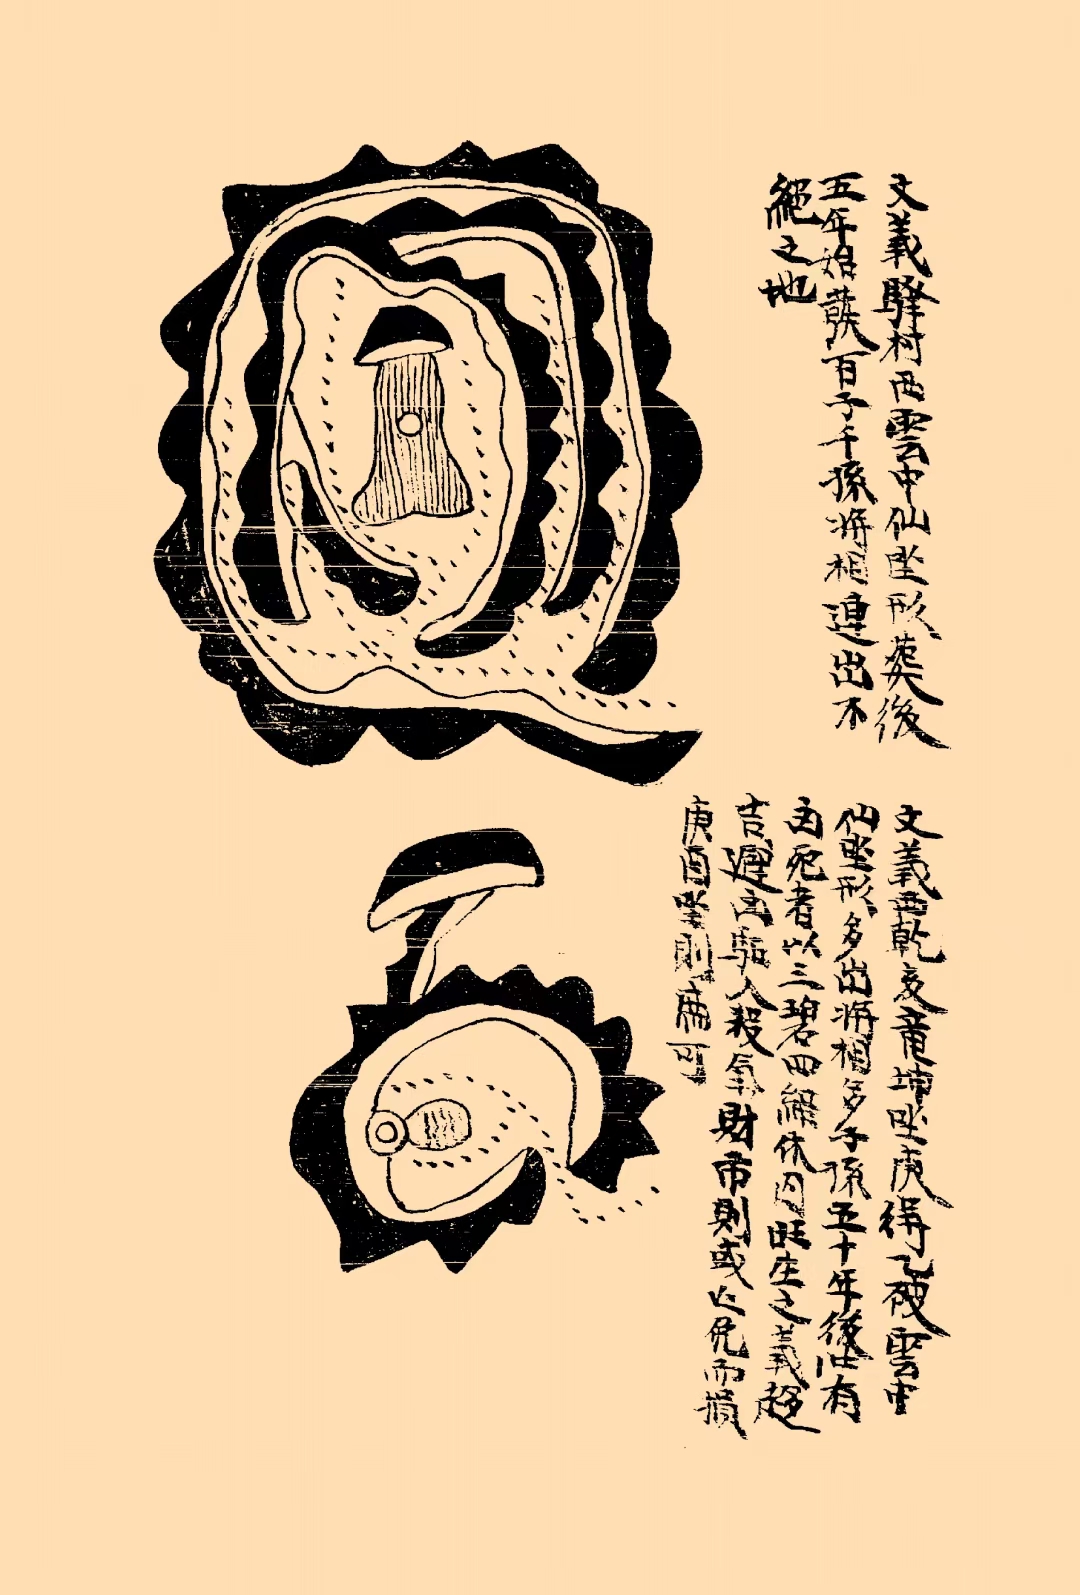 文義驛村西雲中仙坐形葬後
五年始發百子千孫將相連出不
絕之地
文義西乾亥竜坤坐庚得乙破雲中
仙坐形多出將相多子孫五十年後
有
死者以三碧四綠休囚旺生之義趍
吉避凶 人殺氣財帛則或 免而損
庚酉坐則 可